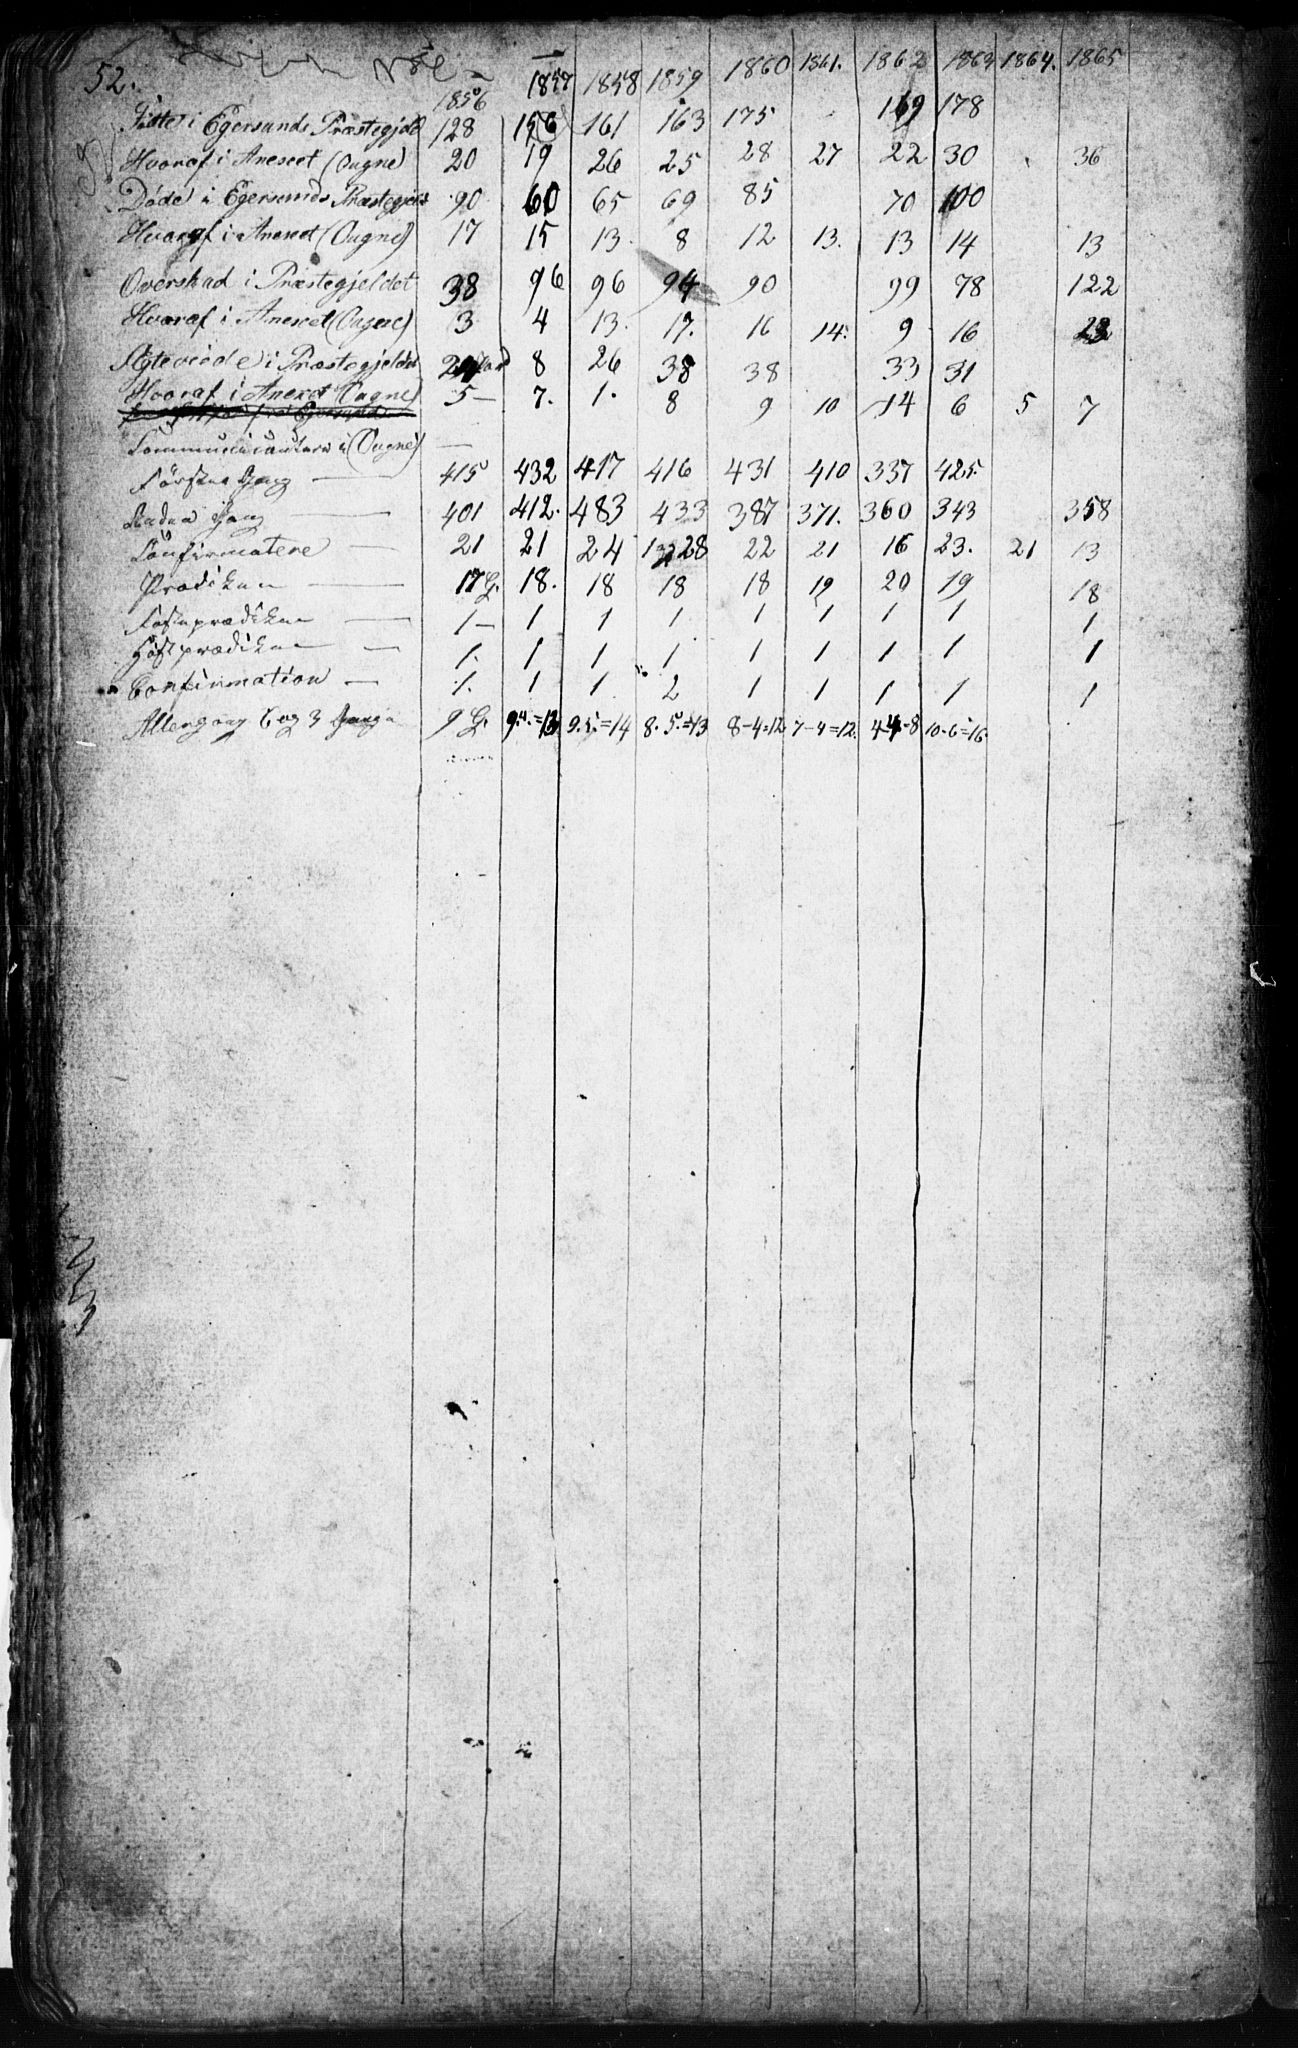 52.
1856 1857 1858 1859 1860 1861. 1862 1863 1864. 1865
Fødte i Egersunds Præstegjeld 128 156 161 163 175 169 178
Hvoraf i Anexet (Ougne) 20 19 26 25 28 27 22 30 36
Døde i Egersunds Præstegjeld 90 60 65 69 85 70 100
Hvoraf i Anexet (Ougne) 17 15 13. 8 12 13. 13 14 13
Overskud i Præstegjeldet 38 96 96 94 90 99 78 122
Hvoraf i Anexet (Ougne) 3 4 13. 17. 16 14. 9 16 23
Ægteviede i Præstegjeldet 8 26 38 38 33 31
Hvoraf i Anexet (Ougne) 5 – 7. 1. 8 9 10 14 6 5 7
Communicantere i (Ougne) —
Første Gang — 415 432 417 416 431 410 337 425
Anden Gang — 401 412. 483 433 387 371. 360 343 358
Confirmatere — 21 21 24 28 22 21 16 23. 21 13
Prædiken — 17 G. 18. 18 18 18 19 20 19 18
Fasteprædiken — 1 – 1 1 1 1 1 1 1 1
Høstprædiken — 1. 1 1 1 1 1 1 1 1
Confirmation — 1. 1 1 2 1 1 1 1 1
Altergang 9 G. 9.4.=13 9.5.=14 8.5.=13 8–4=12 7–4=12. 4–4–8 10–6=16.